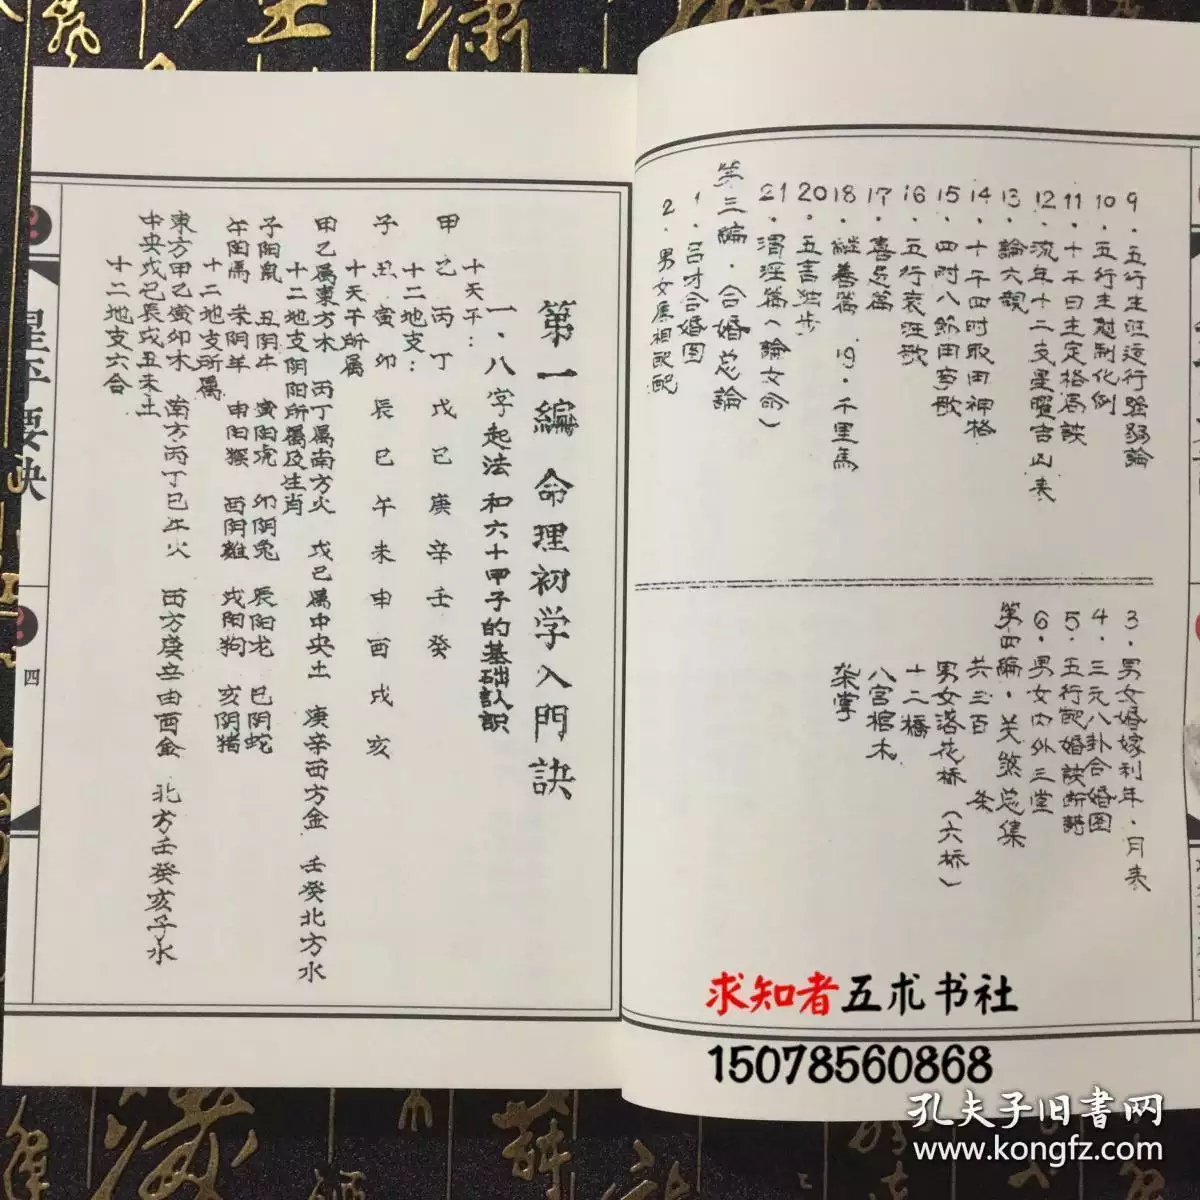 9．五行生旺运行强弱論
10．五行生尅制化例
11．十干日主定格局訣
12．流年十二支星曜吉凶表
13．論六親
14．十干四时取用神格
15．四时八節用事歌
16．五行衰旺歌
17．喜忌篇
18．継善篇 19．千里馬
20．五言独步
21．渭涇篇（論女命）
第三編．合婚总論
1．吕才合婚图
2．男女屬相配配
3．男女婚嫁利年．月表
4．三元八卦合婚图
5．五行配婚訣断語
6．男女内外三堂
第四編．关煞总集
共三百 条
男女落花桥（六桥）
十二橋
八宫棺木
第一編 命理初学入門訣
一．八字起法和六十甲子的基础认识
十天干：
甲乙丙丁戊己庚辛壬癸
十二地支：
子丑寅卯辰巳午未申酉戌亥
十天干所属
甲乙属東方木 丙丁属南方火 戊己属中央土 庚辛西方金 壬癸北方水
十二地支阴阳所属及生肖
子阳鼠 丑阴牛 寅阳虎 卯阴兔 辰阳龙 巳阴蛇
午阳馬 未阴羊 申阳猴 酉阴雞 戌阳狗 亥阴猪
十二地支所属
東方甲乙寅卯木 南方丙丁巳午火 西方庚辛申酉金 北方壬癸亥子水
中央戊己辰戌丑未土
十二地支六合
星平要訣
四
求知者五术书社
15078560868
孔夫子旧書网
www.kongfz.com